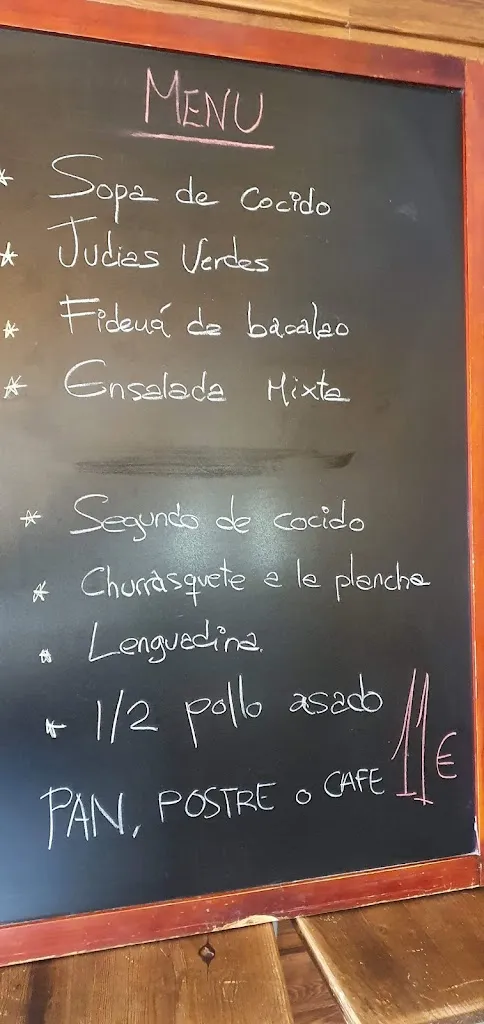 MENU
* Sopa de cocido
* Judias Verdes
* Fideuá de bacalao
* Ensalada Mixta
* Segundo de cocido
* Churrasquete a la plancha
* Lenguadina.
* 1/2 pollo asado
PAN, POSTRE o CAFE 11€